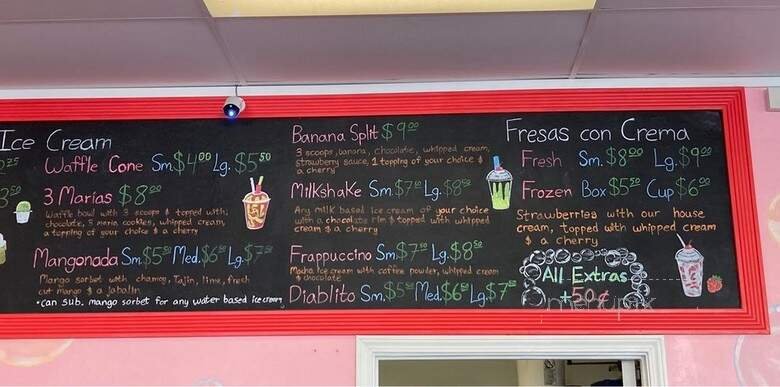 Ice Cream
Waffle Cone Sm. $4.00 Lg. $5.50
3 Marias $8.00
Waffle bowl with 3 scoops & topped with
chocolate, 3 maria cookies, whipped cream,
a topping of your choice & a cherry
Mangonada Sm. $5.50 Med. $6.50 Lg. $7.50
Mango sorbet with chamoy, Tajin, lime, fresh
cut mango & a jabalin
*can sub. mango sorbet for any water based ice cream
Banana Split $9.00
3 scoops, banana, chocolate, whipped cream,
strawberry sauce, 1 topping of your choice &
a cherry
Milkshake Sm. $7.50 Lg. $8.50
Any milk based ice cream of your choice
with a chocolate rim & topped with whipped
cream & a cherry
Frappuccino Sm. $7.50 Lg. $8.50
Mocha ice cream with coffee powder, whipped cream
& chocolate
Diablito Sm. $5.50 Med. $6.50 Lg. $7.50
Fresas con Crema
Fresh Sm. $8.00 Lg. $9.00
Frozen Box $5.50 Cup $6.00
Strawberries with our house
cream, topped with whipped cream
& a cherry
All Extras
+50¢
menupix